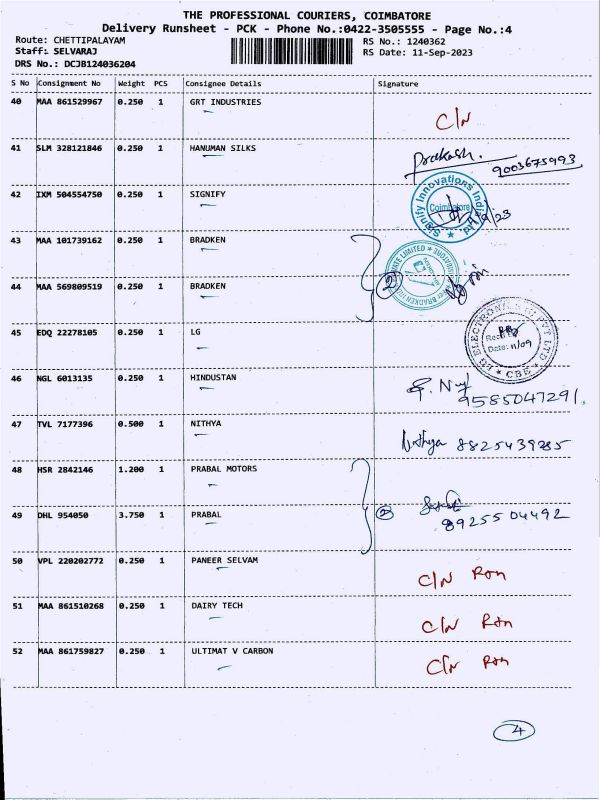 THE PROFESSIONAL COURIERS, COIMBATORE
Delivery Runsheet - PCK - Phone No.:0422-3505555 - Page No.:4
Route: CHETTIPALAYAM RS No.: 1240362
Staff: SELVARAJ RS Date: 11-Sep-2023
DRS No.: DCJB124036204
S No Consignment No Weight PCS Consignee Details Signature
40 MAA 861529967 0.250 1 GRT INDUSTRIES
C/N
41 SLM 328121846 0.250 1 HANUMAN SILKS Prakash.
9003675993
42 IXM 504554750 0.250 1 SIGNIFY Signify Innovations India Ltd
Coimbatore
43 MAA 101739162 0.250 1 BRADKEN
2
44 MAA 569809519 0.250 1 BRADKEN
45 EDQ 22278105 0.250 1 LG
Date: 11/09
CBE
46 NGL 6013135 0.250 1 HINDUSTAN
9585047291.
47 TVL 7177396 0.500 1 NITHYA Nithya 8825439285
48 HSR 2842146 1.200 1 PRABAL MOTORS
2
49 DHL 954050 3.750 1 PRABAL 8925504492
50 VPL 220202772 0.250 1 PANEER SELVAM C/N
51 MAA 861510268 0.250 1 DAIRY TECH C/N
52 MAA 861759827 0.250 1 ULTIMAT V CARBON C/N
4